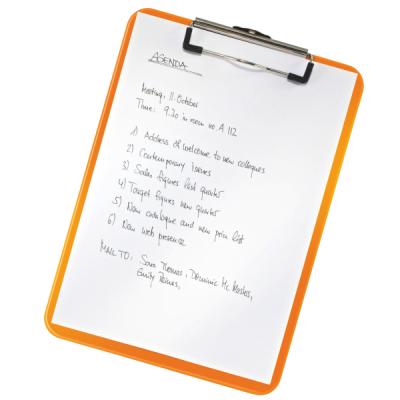 AGENDA
Meeting, 11 October
Time: 9.30 in room no A 112
1) Address of welcome to new collegues
2) Contemporary issues
3) Sales figures last quarter
4) Target figures new quarter
5) New catalogue and new price list
6) New web presence
MAIL TO: Sara Thomas, Dominic Mc
Emily